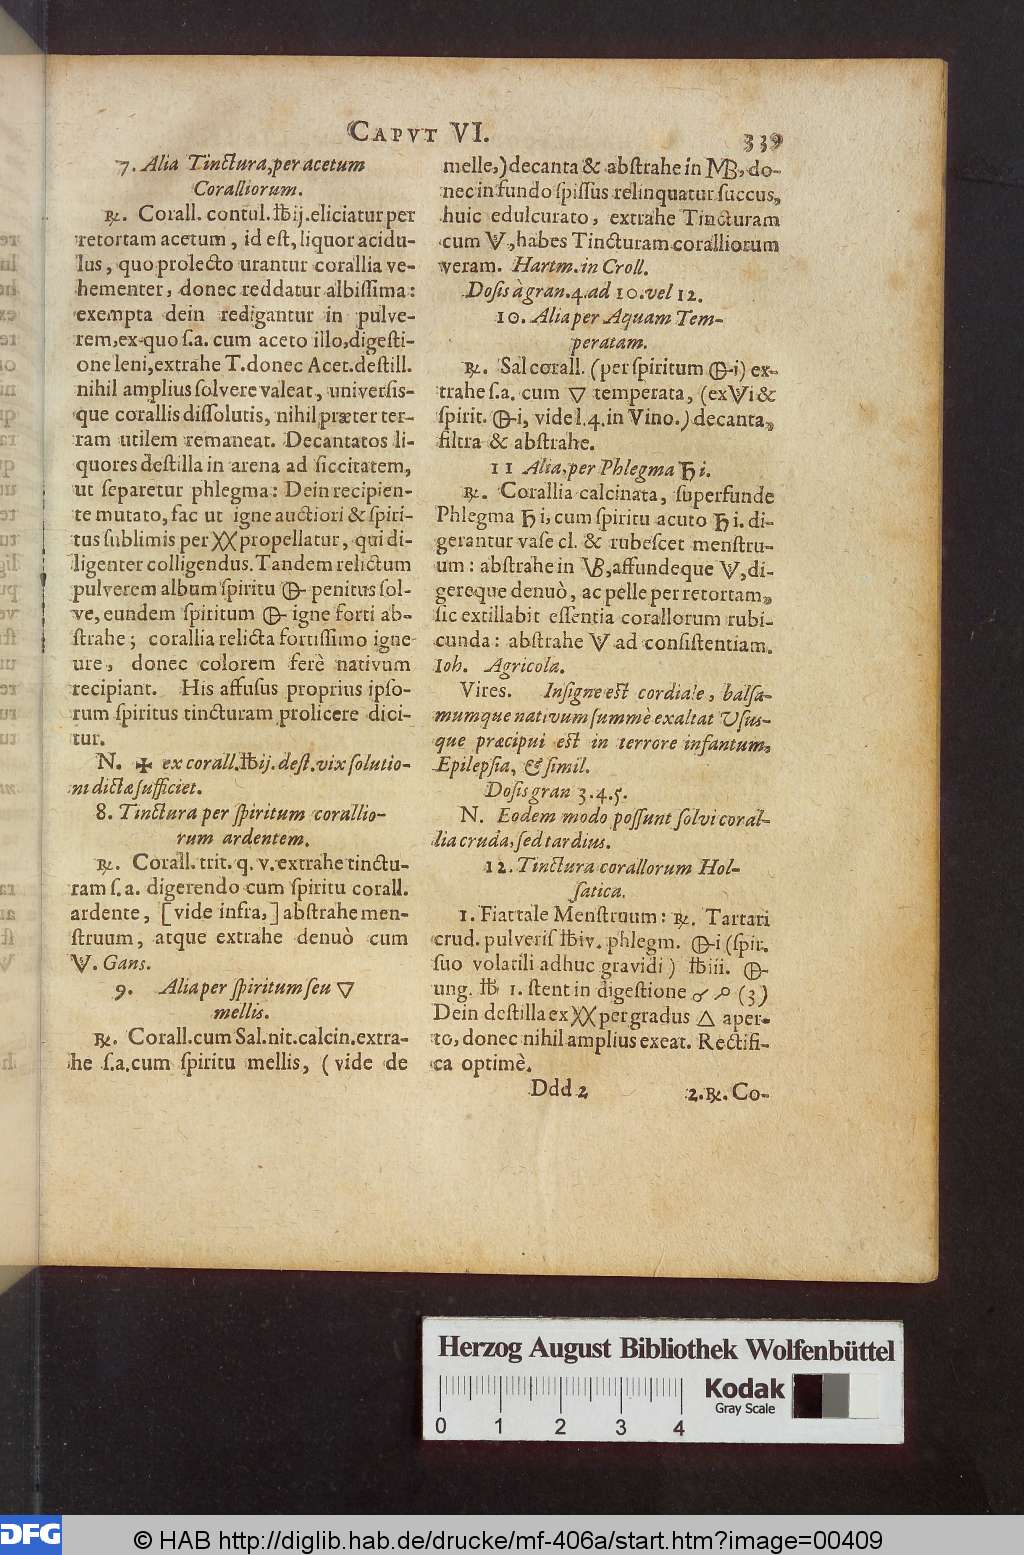 CAPVT VI. 339
7. Alia Tinctura, per acetum
Coralliorum.
℞. Corall. contul. ℔ij. eliciatur per
retortam acetum, id est, liquor acidu-
lus, quo prolecto urantur corallia ve-
hementer, donec reddatur albissima:
exempta dein redigantur in pulve-
rem, ex-quo s.a. cum aceto illo, digesti-
one leni, extrahe T. donec Acet. destill.
nihil amplius solvere valeat, universis-
que corallis dissolutis, nihil præter ter-
ram utilem remaneat. Decantatos li-
quores destilla in arena ad siccitatem,
ut separetur phlegma: Dein recipien-
te mutato, fac ut igne auctiori & spiri-
tus sublimis per XX propellatur, qui di-
ligenter colligendus. Tandem relictum
pulverem album spiritu 🜕 penitus sol-
ve, eundem spiritum 🜕 igne forti ab-
strahe; corallia relicta fortissimo igne
ure, donec colorem ferè nativum
recipiant. His affusus proprius ipso-
rum spiritus tincturam prolicere dici-
tur.
N. ✠ ex corall. ℔ij. dest. vix solutio-
ni dictæ sufficiet.
8. Tinctura per spiritum corallio-
rum ardentem.
℞. Corall. trit. q. v. extrahe tinctu-
ram s. a. digerendo cum spiritu corall.
ardente, [vide infra,] abstrahe men-
struum, atque extrahe denuò cum
🜈. Gans.
9. Alia per spiritum seu ▽
mellis.
℞. Corall. cum Sal. nit. calcin. extra-
he s.a. cum spiritu mellis, (vide de
melle,) decanta & abstrahe in MB, do-
nec in fundo spissus relinquatur succus,
huic edulcurato, extrahe Tincturam
cum 🜈, habes Tincturam coralliorum
veram. Hartm. in Croll.
Dosis à gran. 4. ad 10. vel 12.
10. Alia per Aquam Tem-
peratam.
℞. Sal corall. (per spiritum 🜕i) ex-
trahe s.a. cum ▽ temperata, (ex 🜈i &
spirit. 🜕i, vide l. 4. in Vino.) decanta,
filtra & abstrahe.
11 Alia, per Phlegma ♄i.
℞. Corallia calcinata, superfunde
Phlegma ♄i, cum spiritu acuto ♄i. di-
gerantur vase cl. & rubescet menstru-
um: abstrahe in VB, affundeque 🜈, di-
gereque denuò, ac pelle per retortam,
sic extillabit essentia corallorum rubi-
cunda: abstrahe 🜈 ad consistentiam.
Ioh. Agricola.
Vires. Insigne est cordiale, balsa-
mumque nativum summè exaltat Usus-
que præcipui est in terrore infantum,
Epilepsia, & simil.
Dosis gran 3. 4. 5.
N. Eodem modo possunt solvi coral-
lia cruda, sed tardius.
12. Tinctura corallorum Hol-
satica.
1. Fiat tale Menstruum: ℞. Tartari
crud. pulveris ℔iv. phlegm. 🜕i (spir.
suo volatili adhuc gravidi) ℔iii. 🜕
ung. ℔ 1. stent in digestione (3)
Dein destilla ex XX per gradus △ aper-
to, donec nihil amplius exeat. Rectifi-
ca optimè.
Ddd 2 2. ℞. Co-
Herzog August Bibliothek Wolfenbüttel
Kodak
Gray Scale
0 1 2 3 4
DFG
© HAB http://diglib.hab.de/drucke/mf-406a/start.htm?image=00409